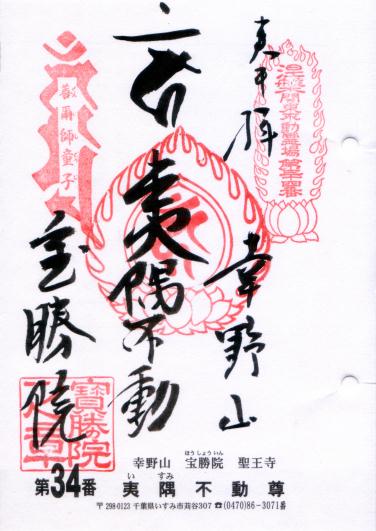 奉拝
幸野山
夷隅不動
宝勝院
善爾師童子
寶勝院
幸野山 宝勝院 聖王寺
ほうしょういん
第34番 夷隅不動尊
いすみ
〒298-0123 千葉県いすみ市苅谷307 ☎(0470)86-3071番